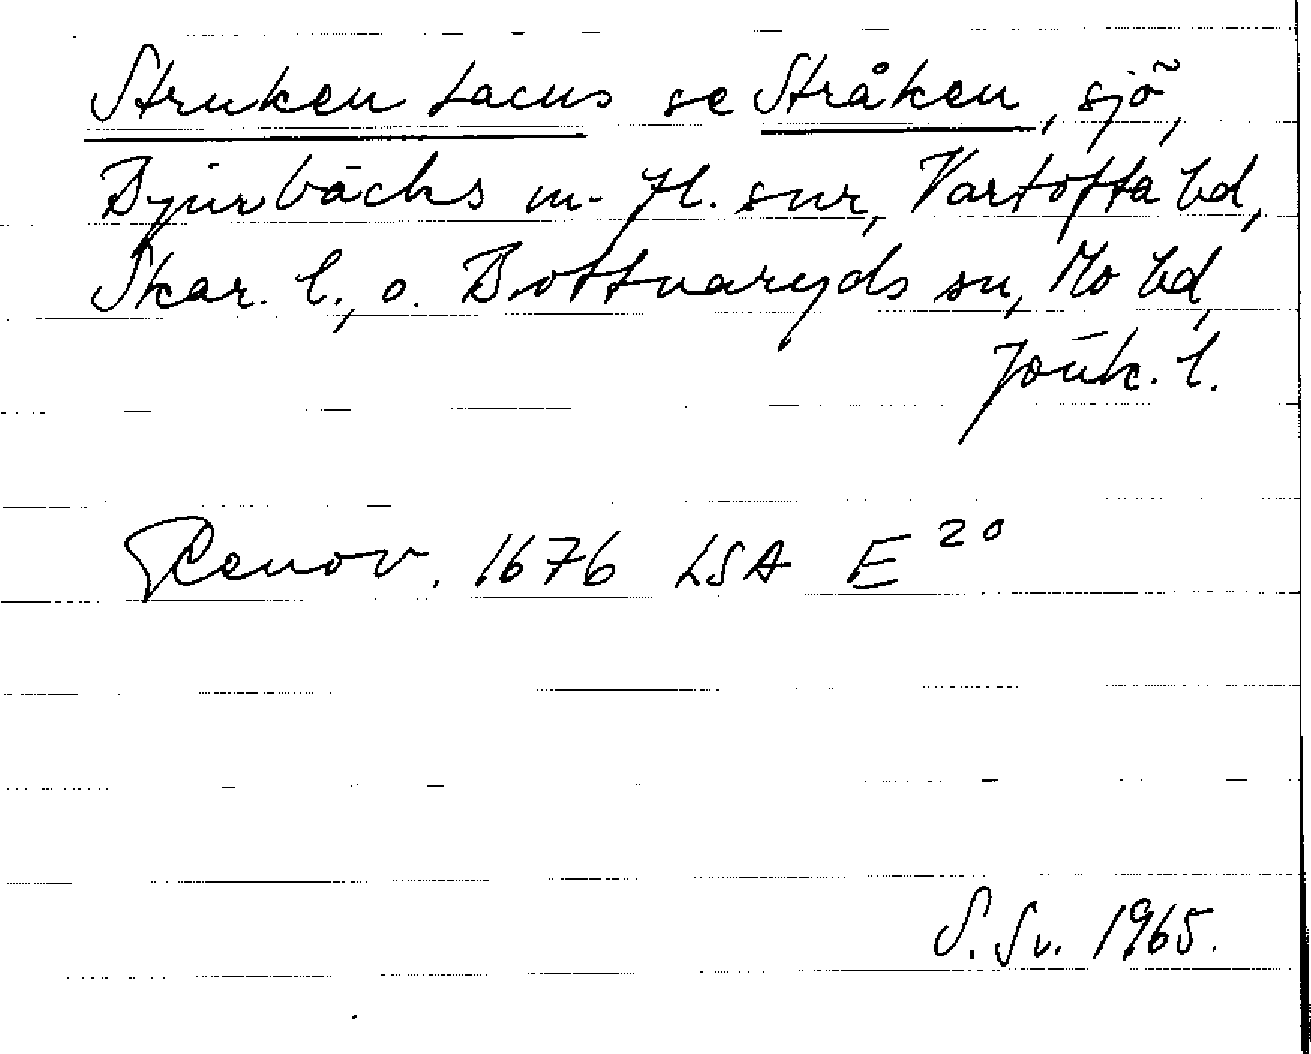 Struken Lacus se Stråken, sjö,
Bjurbäcks m. fl. snr, Vartofta hd,
Skar. l., o. Bottnaryds sn, Mo hd,
Jönk. l.
Renov. 1676 LSA E 20
S. Sv. 1965.